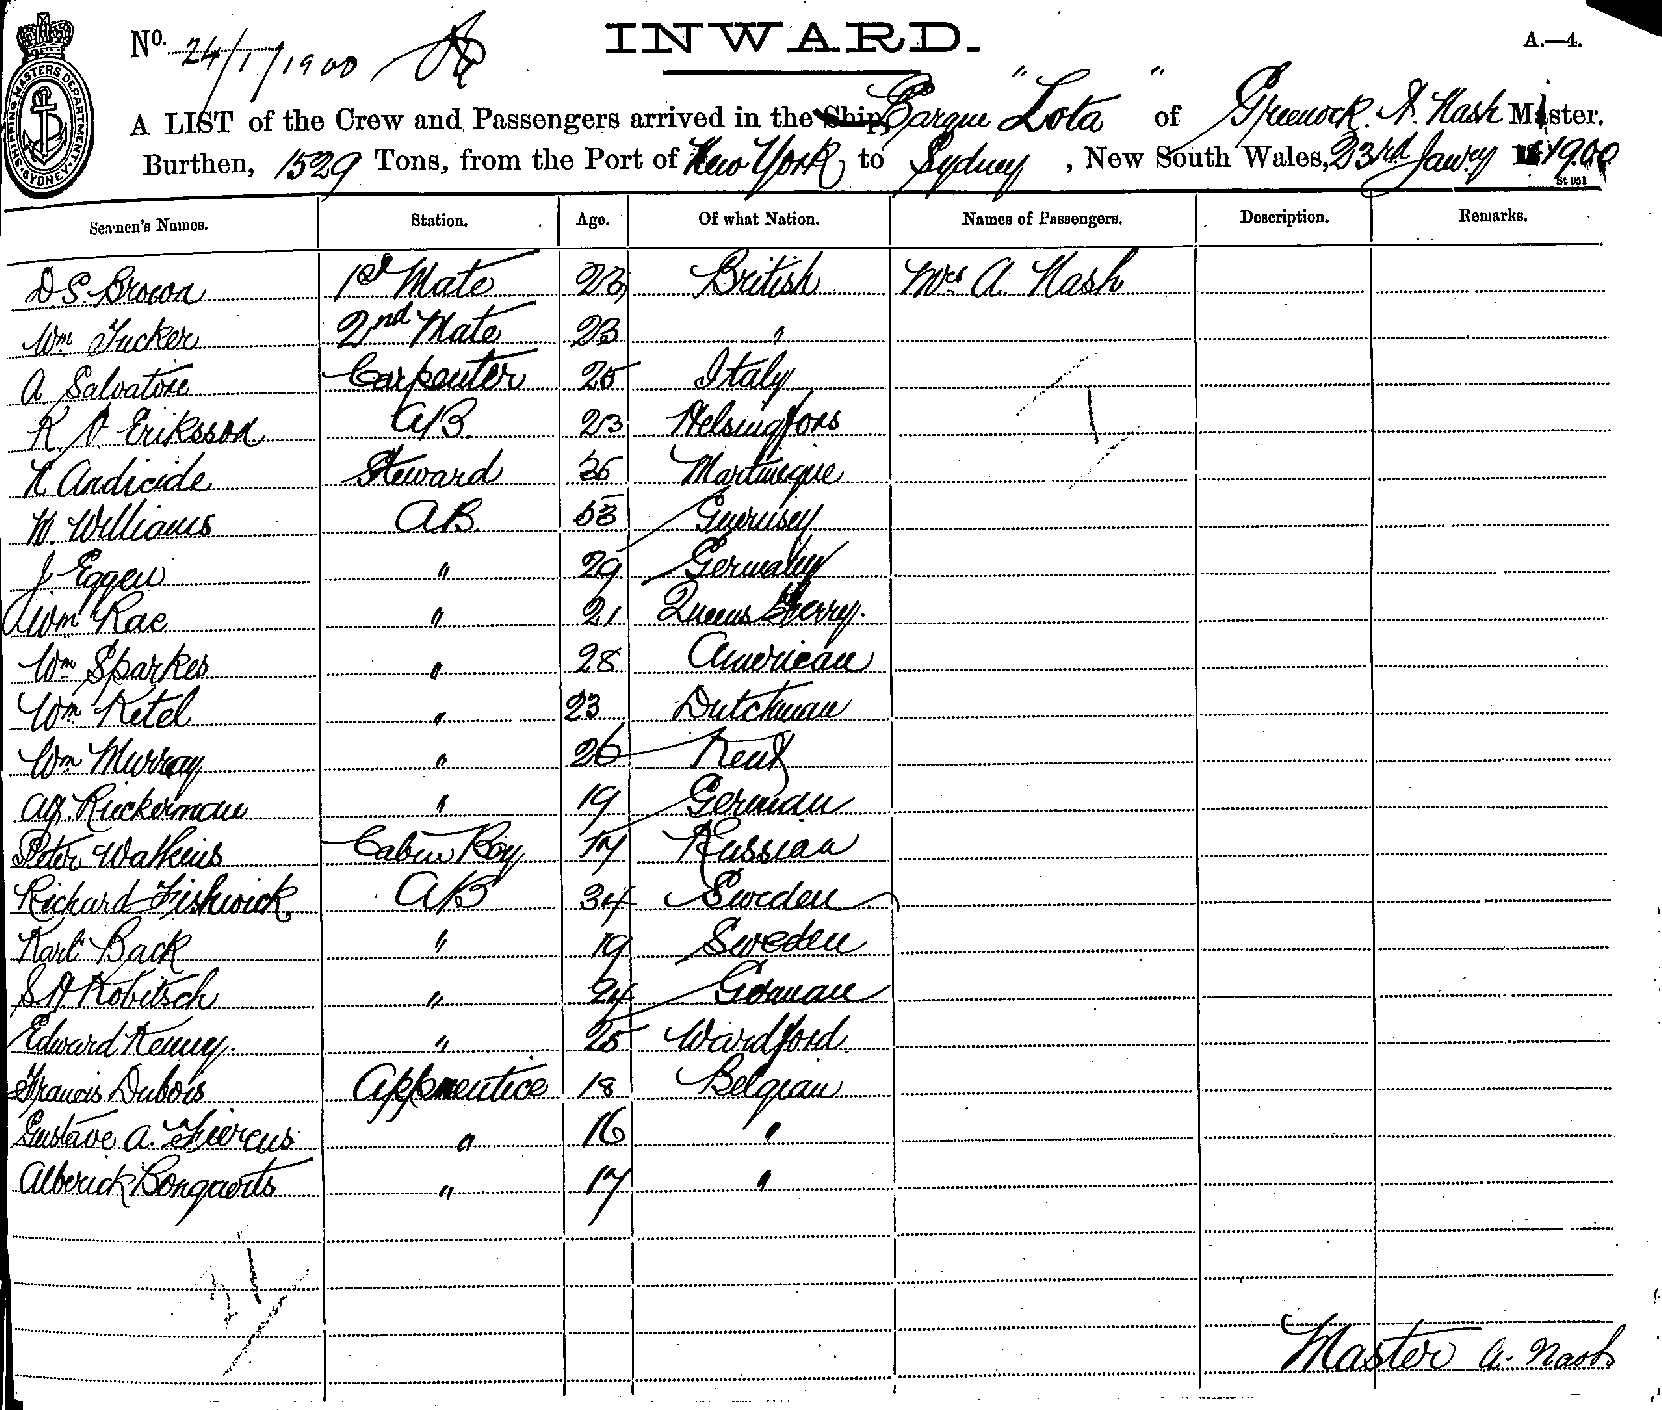 SHIPPING MASTERS DEPARTMENT SYDNEY
No. 24/1/1900
INWARD.
A.—4.
A LIST of the Crew and Passengers arrived in the Ship, Barque "Lota" of Greenock, A. Nash Master.
Burthen, 1529 Tons, from the Port of New York to Sydney, New South Wales, 23rd Jany 1900
Seamen's Names. Station. Age. Of what Nation. Names of Passengers. Description. Remarks.
D S. Brown 1st Mate 23 British Mrs A. Nash
Wm Tucker 2nd Mate 23 "
A Salvatore Carpenter 25 Italy
K A Eriksson AB. 23 Helsingfors
N Andicide Steward 35 Martinique
W. Williams AB. 53 Guernsey
J. Eggen " 29 Germany
Wm Rae " 21 Queens Ferry.
Wm Sparkes " 28 American
Wm Ketel " 23 Dutchman
Wm Murray " 26 Kent
Alf. Ruckerman " 19 German
Peter Watkins Cabin Boy 17 Russian
Richard Fishwick AB 34 Sweden
Karl Back " 19 Sweden
S A Kobitsch " 24 German
Edward Kenny. " 25 Wardford
Francis Dubois Apprentice 18 Belgian
Gustave A. Fiercus " 16 "
Alberick Bongaerts " 17 "
21
1
Master A. Nash